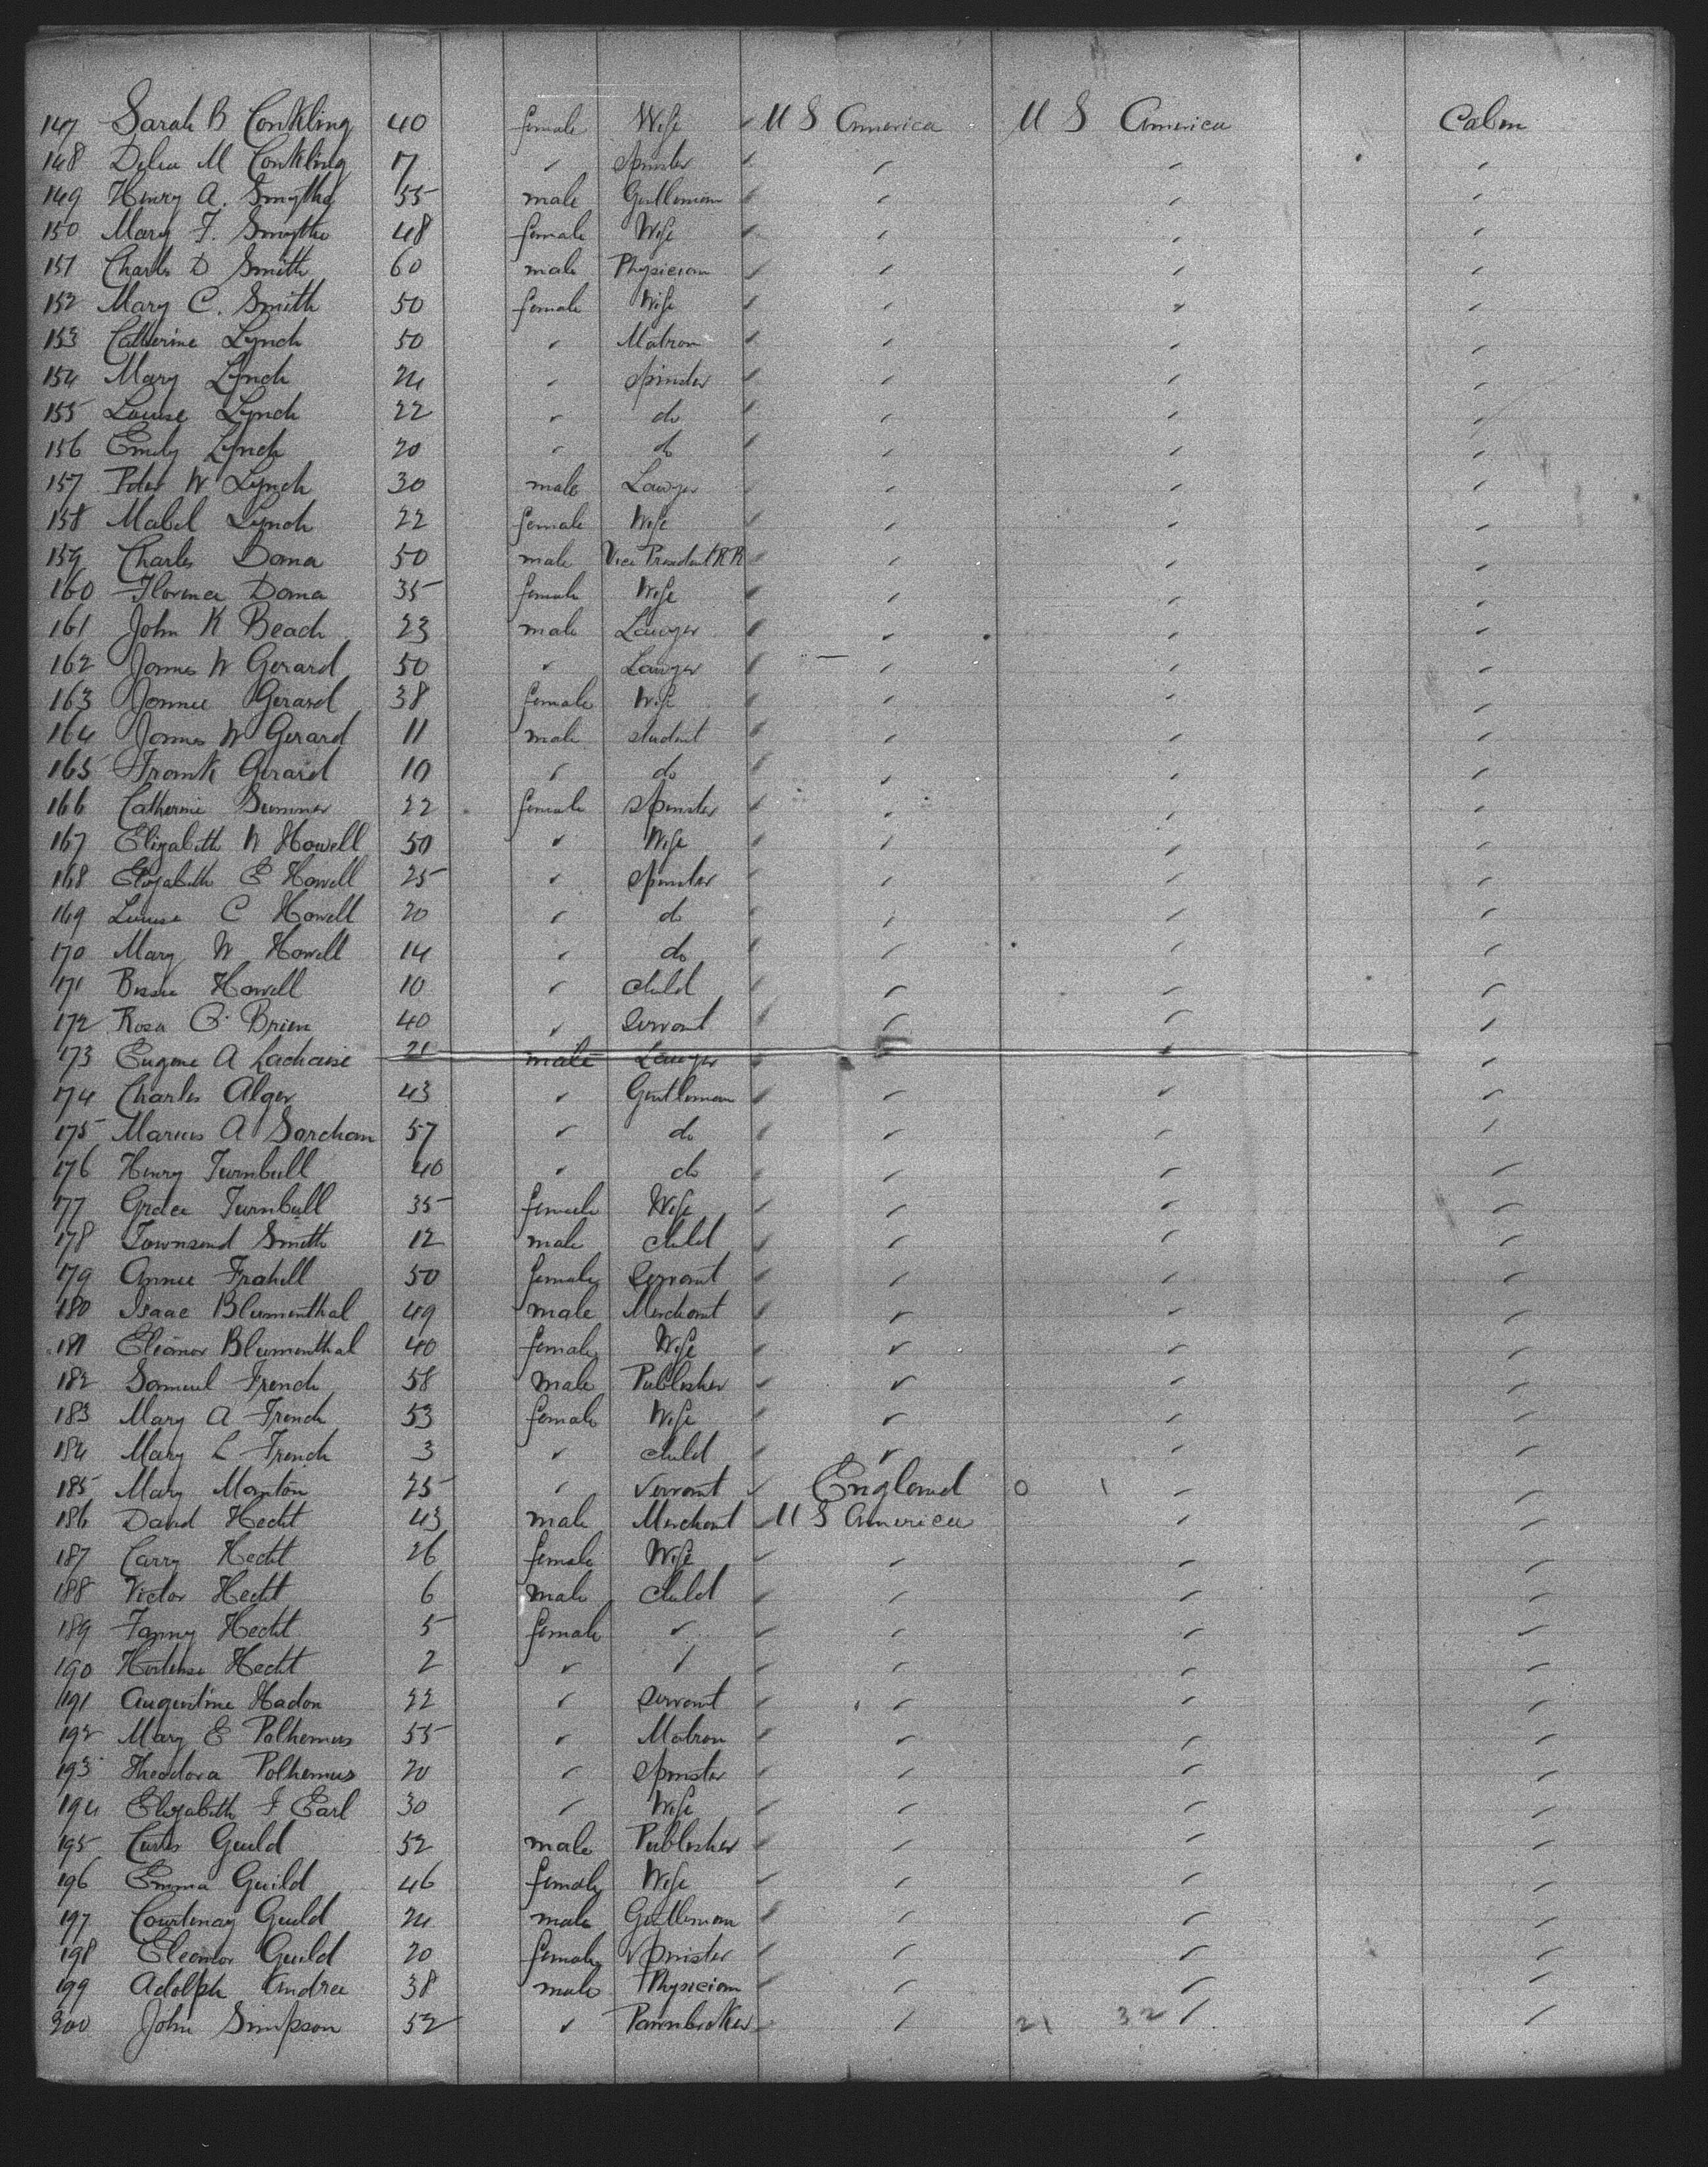 147 Sarah B Conkling 40 female Wife ✓ U S America U S America Cabin
148 Delia M Conkling 17 ✓ Spinster ✓ ✓ ✓ ✓
149 Henry A. Smythe 55 male Gentleman ✓ ✓ ✓ ✓
150 Mary F. Smythe 48 female Wife ✓ ✓ ✓ ✓
151 Charles D Smith 60 male Physician ✓ ✓ ✓ ✓
152 Mary C. Smith 50 female Wife ✓ ✓ ✓ ✓
153 Catherine Lynch 50 ✓ Matron ✓ ✓ ✓ ✓
154 Mary Lynch 24 ✓ Spinster ✓ ✓ ✓ ✓
155 Louise Lynch 22 ✓ do ✓ ✓ ✓ ✓
156 Emily Lynch 20 ✓ do ✓ ✓ ✓ ✓
157 Peter W Lynch 30 male Lawyer ✓ ✓ ✓ ✓
158 Mabel Lynch 22 female Wife ✓ ✓ ✓ ✓
159 Charles Dana 50 male Vice President RR ✓ ✓ ✓ ✓
160 Florence Dana 35 female Wife ✓ ✓ ✓ ✓
161 John K Beach 23 male Lawyer ✓ ✓ ✓ ✓
162 James W Gerard 50 ✓ Lawyer ✓ ✓ ✓ ✓
163 Jennie Gerard 38 female Wife ✓ ✓ ✓ ✓
164 James W Gerard 11 male student ✓ ✓ ✓ ✓
165 Frank Gerard 10 ✓ do ✓ ✓ ✓ ✓
166 Catherine Sumner 22 female Spinster ✓ ✓ ✓ ✓
167 Elizabeth W Howell 50 ✓ Wife ✓ ✓ ✓ ✓
168 Elizabeth E Howell 25 ✓ Spinster ✓ ✓ ✓ ✓
169 Louise C Howell 20 ✓ do ✓ ✓ ✓ ✓
170 Mary W Howell 14 ✓ do ✓ ✓ ✓ ✓
171 Bessie Howell 10 ✓ child ✓ ✓ ✓ ✓
172 Rosa O'Brien 40 ✓ Servant ✓ ✓ ✓ ✓
173 Eugene A Lachaise 21 male Lawyer ✓ ✓ ✓ ✓
174 Charles Alger 43 ✓ Gentleman ✓ ✓ ✓ ✓
175 Marius A 57 ✓ do ✓ ✓ ✓ ✓
176 Henry Turnbull 40 ✓ do ✓ ✓ ✓ ✓
177 Grace Turnbull 35 female Wife ✓ ✓ ✓ ✓
178 Townsend Smith 12 male child ✓ ✓ ✓ ✓
179 Annie 50 female Servant ✓ ✓ ✓ ✓
180 Isaac Blumenthal 49 male Merchant ✓ ✓ ✓ ✓
181 Eleanor Blumenthal 40 female Wife ✓ ✓ ✓ ✓
182 Samuel French 58 male Publisher ✓ ✓ ✓ ✓
183 Mary A French 53 female Wife ✓ ✓ ✓ ✓
184 Mary L French 3 ✓ child ✓ ✓ ✓ ✓
185 Mary 25 ✓ Servant ✓ England 0 1 ✓ ✓
186 David Hecht 43 male Merchant ✓ U S America ✓ ✓
187 Carry Hecht 26 female Wife ✓ ✓ ✓ ✓
188 Victor Hecht 6 male child ✓ ✓ ✓ ✓
189 Fanny Hecht 5 female ✓ ✓ ✓ ✓ ✓
190 Hortense Hecht 2 ✓ ✓ ✓ ✓ ✓ ✓
191 Augustine Hadon 22 ✓ Servant ✓ ✓ ✓ ✓
192 Mary E Polhemus 55 ✓ Matron ✓ ✓ ✓ ✓
193 Theodora Polhemus 20 ✓ Spinster ✓ ✓ ✓ ✓
194 Elizabeth F Earl 30 ✓ Wife ✓ ✓ ✓ ✓
195 Curtis Guild 52 male Publisher ✓ ✓ ✓ ✓
196 Emma Guild 46 female Wife ✓ ✓ ✓ ✓
197 Courtenay Guild 24 male Gentleman ✓ ✓ ✓ ✓
198 Eleanor Guild 20 female Spinster ✓ ✓ ✓ ✓
199 Adolph Andrea 38 male Physician ✓ ✓ ✓ ✓
200 John Simpson 52 ✓ Pawnbroker ✓ ✓ 21 32 ✓ ✓